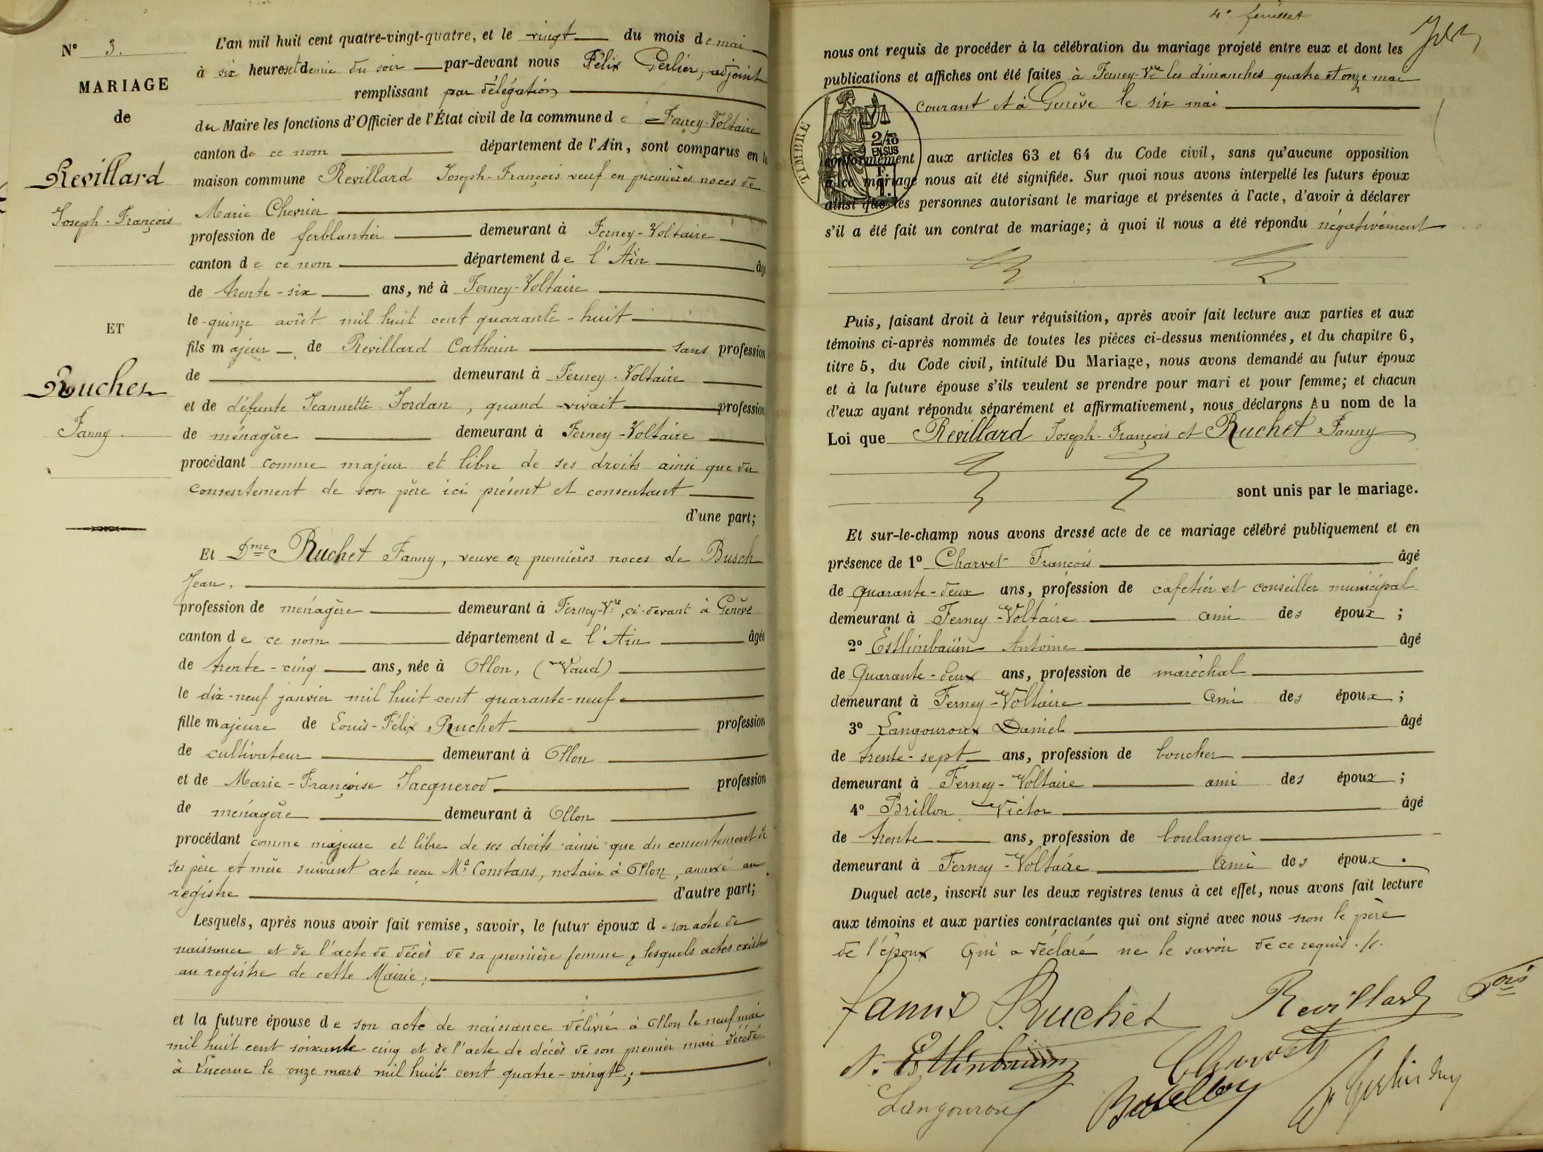 N° 3.
MARIAGE
de
Revillard
Joseph-François
ET
Ruchet
Fanny
L'an mil huit cent quatre-vingt-quatre, et le vingt du mois de mai
à six heures et demie du soir par-devant nous Félix Gerlier, adjoint
remplissant par délégation
du Maire les fonctions d'Officier de l'État civil de la commune de Ferney-Voltaire
canton de ce nom département de l'Ain, sont comparus en la
maison commune Revillard Joseph-François veuf en premières noces de
Marie Chevrier
profession de ferblantier demeurant à Ferney-Voltaire
canton de ce nom département de l'Ain âg
de trente-six ans, né à Ferney-Voltaire
le quinze août mil huit cent quarante-huit
fils majeur de Revillard Catherin sans profession
de demeurant à Ferney-Voltaire
et de défunte Jeannette Jordan, quand vivait profession
de ménagère demeurant à Ferney-Voltaire
procédant comme majeur et libre de ses droits ainsi que du
consentement de son père ici présent et consentant
d'une part;
Et Dme Ruchet Fanny, veuve en premières noces de Busch
Jean.
profession de ménagère demeurant à Ferney-Vre, ci-devant à Genève
canton de ce nom département de l'Ain âgée
de trente-cinq ans, née à Ollon, (Vaud)
le dix-neuf janvier mil huit cent quarante-neuf
fille majeure de Louis-Félix Ruchet profession
de cultivateur demeurant à Ollon
et de Marie-Françoise Jacquerod profession
de ménagère demeurant à Ollon
procédant comme majeure et libre de ses droits ainsi que du consentement de
ses père et mère suivant acte reçu Me Constans, notaire à Ollon, annexé au
registre d'autre part;
Lesquels, après nous avoir fait remise, savoir, le futur époux de son acte de
naissance et de l'acte de décès de sa première femme, lesquels actes existent
au registre de cette Mairie;
et la future épouse de son acte de naissance délivré à Ollon le neuf mai
mil huit cent soixante-cinq et de l'acte de décès de son premier mari décédé
à Lucerne le onze mars mil huit cent quatre-vingt;
4e feuillet
nous ont requis de procéder à la célébration du mariage projeté entre eux et dont les
publications et affiches ont été faites à Ferney-Vre les dimanches quatre et onze mai
courant et à Genève le six mai
TIMBRE
2/10
EN SUS
conformément aux articles 63 et 64 du Code civil, sans qu'aucune opposition
à ce mariage nous ait été signifiée. Sur quoi nous avons interpellé les futurs époux
ainsi que les personnes autorisant le mariage et présentes à l'acte, d'avoir à déclarer
s'il a été fait un contrat de mariage; à quoi il nous a été répondu négativement
Puis, faisant droit à leur réquisition, après avoir fait lecture aux parties et aux
témoins ci-après nommés de toutes les pièces ci-dessus mentionnées, et du chapitre 6,
titre 5, du Code civil, intitulé Du Mariage, nous avons demandé au futur époux
et à la future épouse s'ils veulent se prendre pour mari et pour femme; et chacun
d'eux ayant répondu séparément et affirmativement, nous déclarons Au nom de la
Loi que Revillard Joseph-François et Ruchet Fanny
sont unis par le mariage.
Et sur-le-champ nous avons dressé acte de ce mariage célébré publiquement et en
présence de 1° Charvet François âgé
de quarante-deux ans, profession de cafetier et conseiller municipal
demeurant à Ferney-Voltaire ami des époux;
2° Estlinbaüm Antoine âgé
de Quarante-deux ans, profession de maréchal
demeurant à Ferney-Voltaire ami des époux;
3° Langouroux Daniel âgé
de trente-sept ans, profession de boucher
demeurant à Ferney-Voltaire ami des époux;
4° Brillon Victor âgé
de trente ans, profession de boulanger
demeurant à Ferney-Voltaire ami des époux.
Duquel acte, inscrit sur les deux registres tenus à cet effet, nous avons fait lecture
aux témoins et aux parties contractantes qui ont signé avec nous non le père
de l'époux qui a déclaré ne le savoir de ce requis.
Fanny Ruchet Revillard Fois
A. Estlinbaüm Charvet
Langouroux